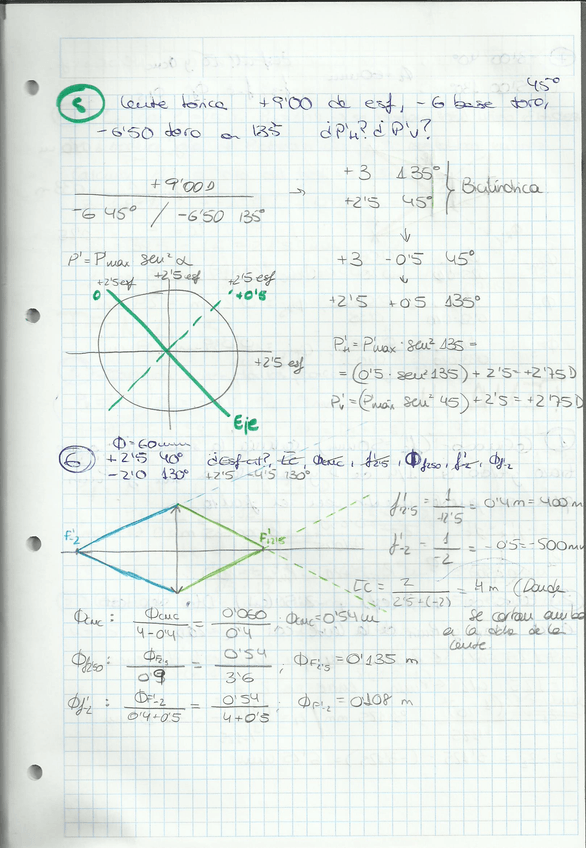 45°
5 Lente tórica +9'00 de esf, -6 base toro,
-6'50 toro a 135 ¿P'H? ¿P'V?
+9'00D
-6 45° / -6'50 135°
→ +3 135°
+2'5 45° } Bicilíndrica
↓
+3 -0'5 45°
↓
+2'5 +0'5 135°
P' = Pmáx sen² α
+2'5 esf +2'5 esf +2'5 esf
0 +0'5
+2'5 esf
Eje
P'H = P'max · sen² 135 =
= (0'5 · sen² 135) + 2'5 = +2'75D
P'V = (P'máx sen² 45) + 2'5 = +2'75D
6 Φ=60mm
+2'5 40°
-2'0 130° +2'5 -4'5 130°
F'-2 F'+2'5
f'2'5 = 1/+2'5 = 0'4m = 400m
f'-2 = 1/-2 = -0'5 = -500m
= 2/2'5+(-2) = 4m (Donde
se cortan amba
la
lente
Φcmc : Φcmc/4-0'4 = 0'060/0'4 ; Φcmc = 0'54m
ΦF'2'5/0'9 = 0'54/3'6 ; ΦF'2'5 = 0'135 m
Φf'-2 : ΦF'-2/0'4+0'5 = 0'54/4+0'5 ; ΦF'-2 = 0'108 m